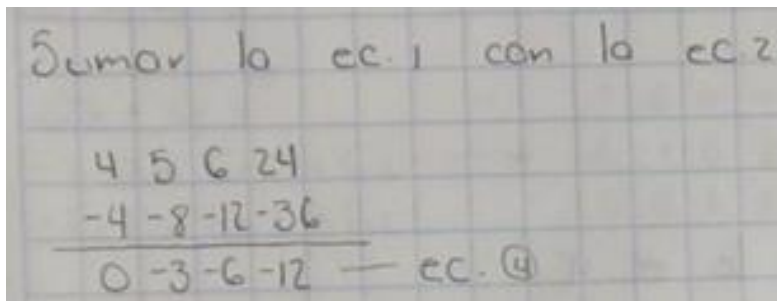 Sumar la ec. 1 con la ec. 2
4 5 6 24
-4 -8 -12 -36
0 -3 -6 -12 — ec. ④